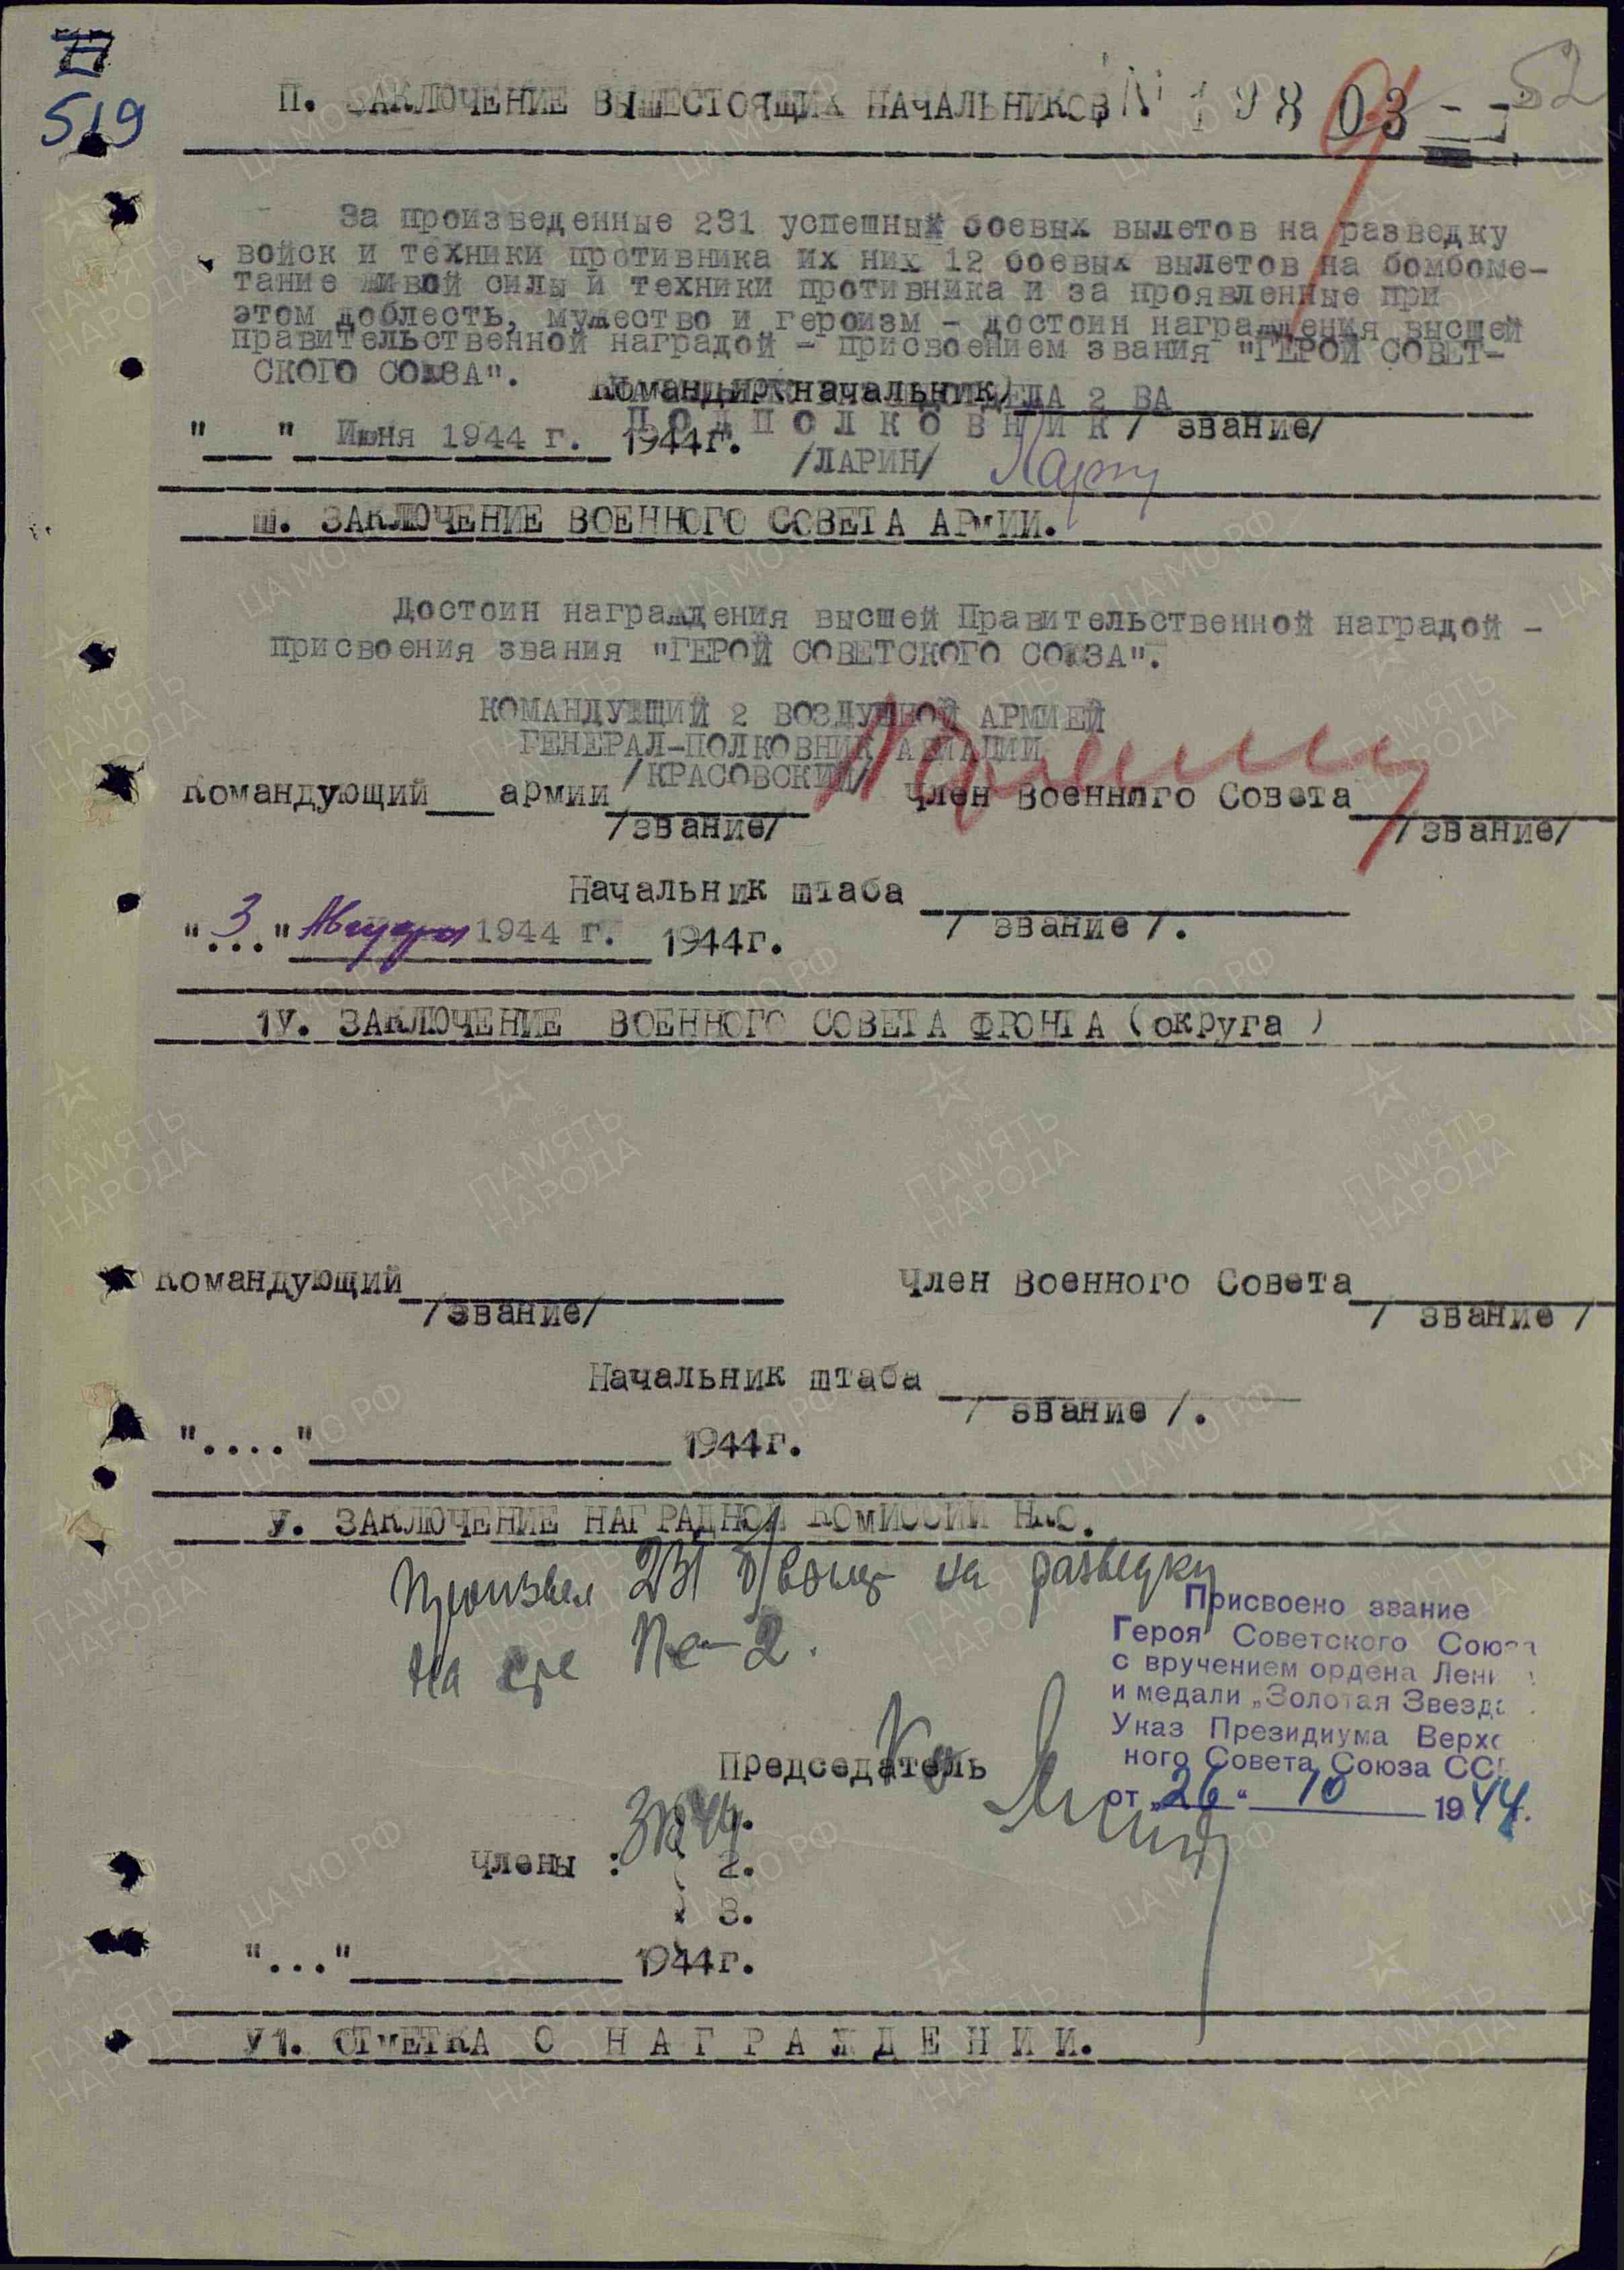 519
52
П. ЗАКЛЮЧЕНИЕ ВЫШЕСТОЯЩИХ НАЧАЛЬНИКОВ № 19803
За произведенные 231 успешных боевых вылетов на разведку
войск и техники противника их них 12 боевых вылетов на бомбоме-
тание живой силы и техники противника и за проявленные при
этом доблесть, мужество и героизм - достоин награждения высшей
правительственной наградой - присвоением звания "ГЕРОЙ СОВЕТ-
СКОГО СОЮЗА".
Командир(начальник) 2 ВА
ПОДПОЛКОВНИК /звание/
" " Июня 1944 г. 1944г.
/ЛАРИН/
Ш. ЗАКЛЮЧЕНИЕ ВОЕННОГО СОВЕТА АРМИИ.
Достоин награждения высшей Правительственной наградой -
присвоения звания "ГЕРОЙ СОВЕТСКОГО СОЮЗА".
КОМАНДУЮЩИЙ 2 ВОЗДУШНОЙ АРМИЕЙ
ГЕНЕРАЛ-ПОЛКОВНИК АВИАЦИИ
/КРАСОВСКИЙ/
Командующий армии Член Военного Совета
/звание/ /звание/
Начальник штаба
/ звание /.
"3" Августа 1944 г. 1944г.
1У. ЗАКЛЮЧЕНИЕ ВОЕННОГО СОВЕТА ФРОНТА (округа)
Командующий Член Военного Совета
/звание/ / звание /
Начальник штаба
/ звание /.
"...." 1944г.
У. ЗАКЛЮЧЕНИЕ НАГРАДНОЙ КОМИССИИ НКО.
Произвел 231 б/вылет на разведку
на с-те Пе-2.
Присвоено звание
Героя Советского Союза
с вручением ордена Лени
и медали „Золотая Звезда
Указ Президиума Верхо
ного Совета Союза ССР
от „26" 10 1944г.
Председатель
Члены : 1.
2.
3.
"..." 1944г.
У1. ОТМЕТКА О НАГРАЖДЕНИИ.
ПАМЯТЬ НАРОДА
ЦА МО РФ